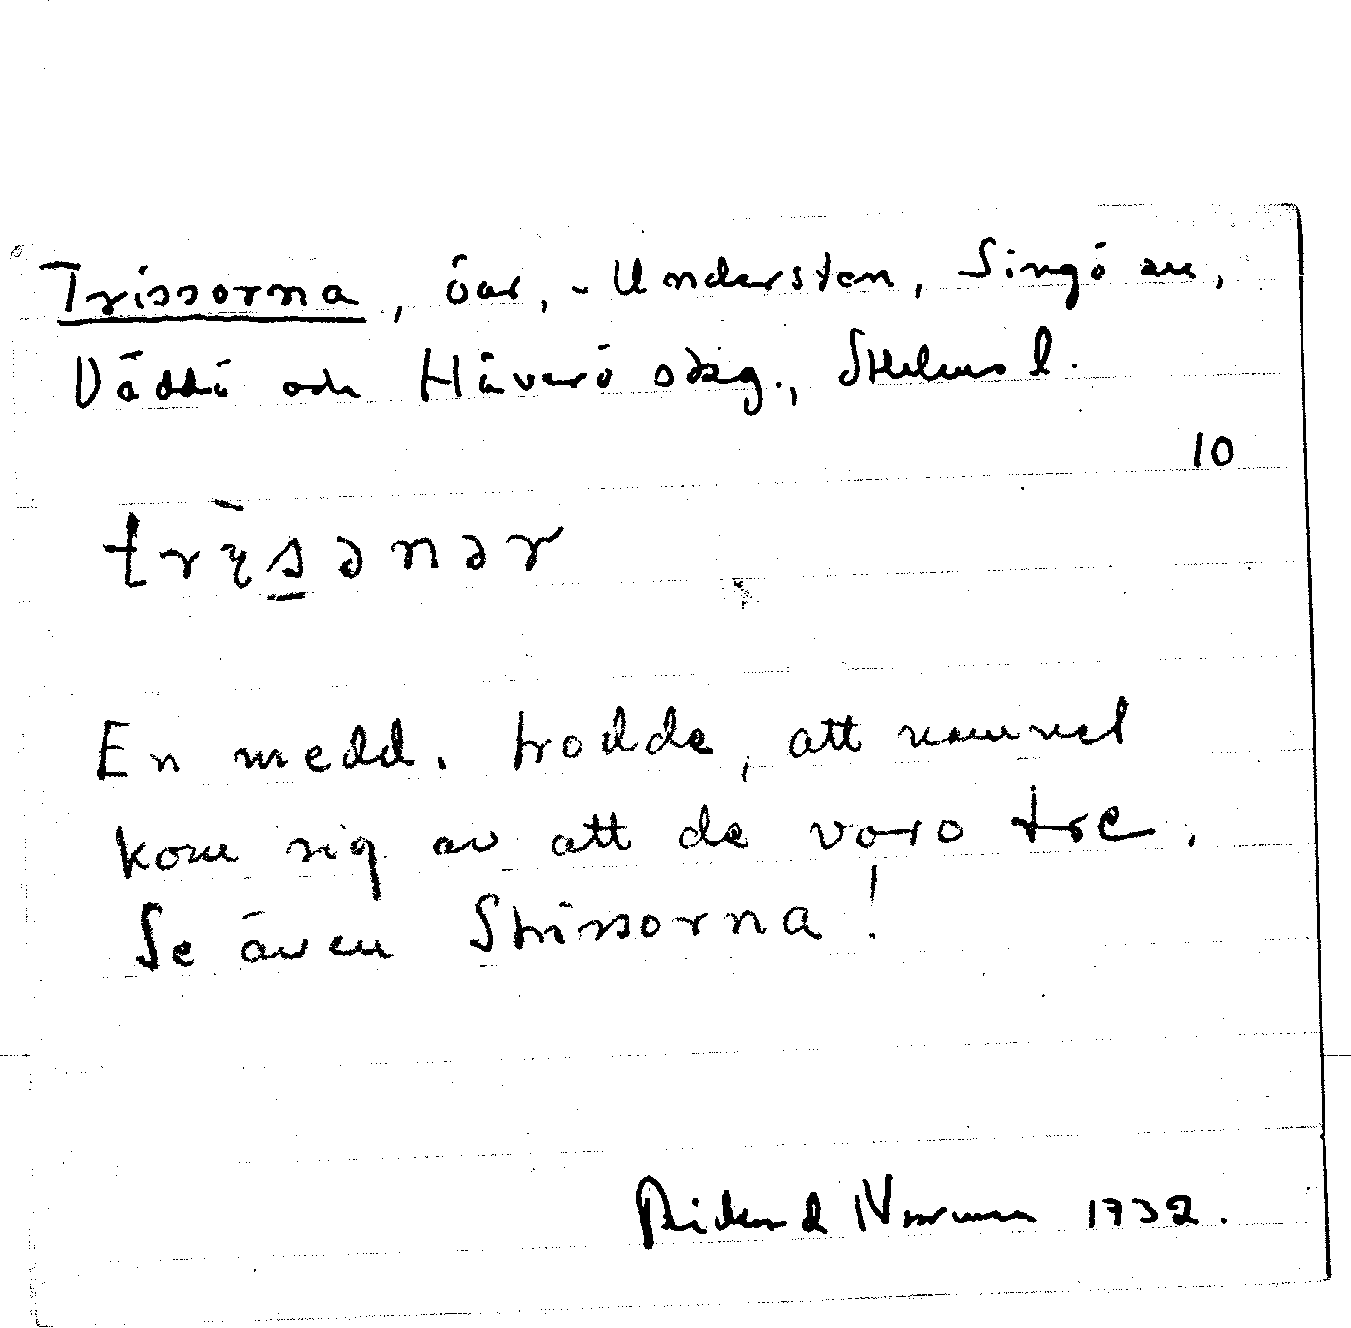 Trissorna, öar, - Understen, Singö sn,
Väddö och Häverö skg., Sthlms l.
10
En medd. trodde, att namnet
kom sig av att de voro tre.
Se även Strissorna!
Rickard Norrman 1932.